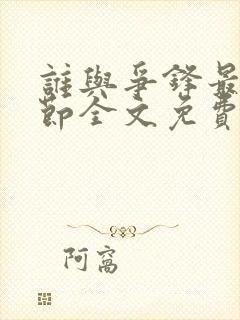 誰與爭鋒最
節全文免費
阿窩